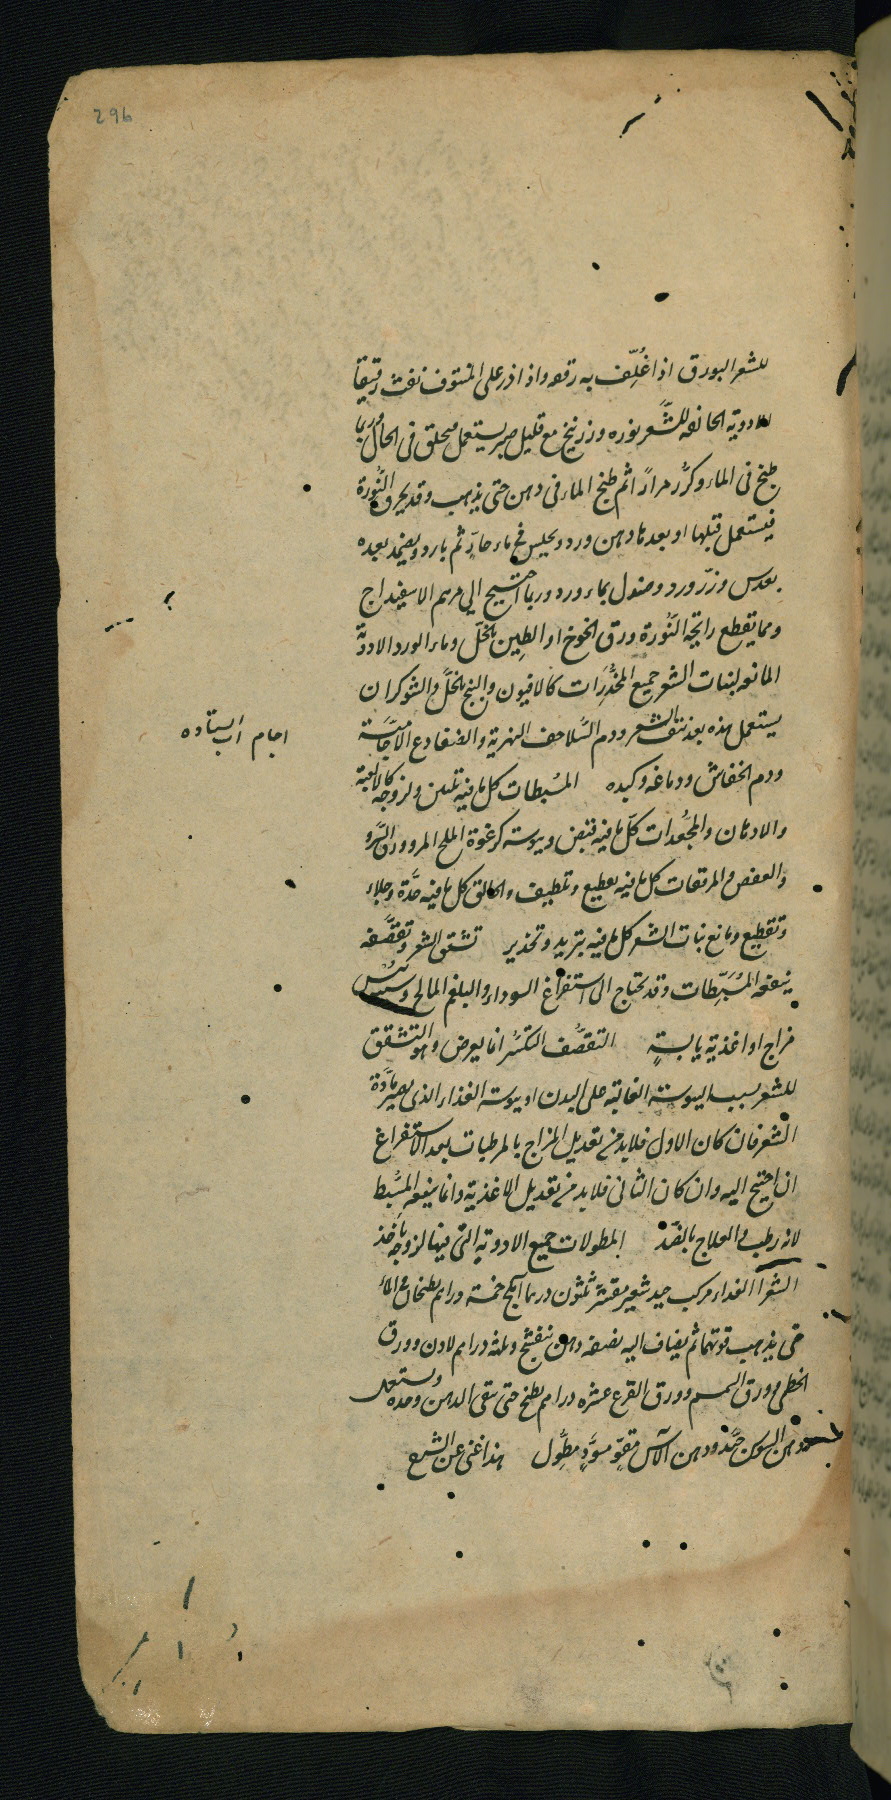 296
للشعر البورق اذا غُلِّف به رققه واذا ذر على المنتوف نبت رقيقاً
الادوية الحالقة للشَّعر نوره وزرنيخ مع قليل صبر يستعمل فيحلق فى الحال وربما
طبخ فى الماء وكرّر مراراً ثم طبخ الماء فى دهن حتى يذهب وقد يحرق النُّورة
فيستعمل قبلها او بعدها دهن ورد ويجلس فى ماء حارّ ثم بارد ويضمد بعده
بعدس وزرّ ورد وصندل بماء ورد وربما احتيج الى مرهم الاسفيداج
ومما يقطع رائحة النُّورة ورق الخوخ او الطين بالخلّ وماء الورد الادوية
المانعه لنبات الشعر جميع المخدِّرات كالافيون والبنج بالخلّ والشوكران
يستعمل هذه بعد نتف الشعر ودم السَّلاحف النهرية والضفادع الآجامية
اجام آب ايستاده
ودم الخفاش ودماغه وكبده المسُبطات كل ما فيه تليين ولزوجة كالالعبة
والادهان والمجعِّدات كلّ ما فيه قبض ويبوسة كرغوة الملح المر وورق السَّرو
والعفص والمرققات كل ما فيه تقطيع وتلطيف والحالق كل ما فيه حدّة وجلاء
وتقطيع ومانع نبات الشعر كل ما فيه تبريد وتخدير تشقق الشعر وتقصُّفه
ينفعه المسُبّطات وقد يحتاج الى استفراغ السوداء والبلغم المالح وسببه يبس
مزاج او اغذية يابسةٍ التقصُّف التكسُّر انما يعرض وهو التشقق
للشعر بسبب اليبوسة الغالبة على البدن او يبوسة الغذاء الذى يصير مادّة
الشعر فان كان الاول فلابد من تعديل المزاج بالمرطبات بعد الاستفراغ
ان احتيج اليه وان كان الثانى فلابد من تعديل الاغذية وانما ينفعه المسُبط
لانه رطب والعلاج بالضد المطولات جميع الادوية التى فيها لزوجة يأخذ
الشعر الغذاء مركب جيد شعير مقشّر ثلثون درهما خمسة دراهم يطبخان فى الماء
حتى يذهب قوتهما ثم يضاف اليه نصفه دهن بنفسج وثلثه دراهم لادن وورق
الخطمى وورق السمسم وورق القرع عشرة دراهم يطبخ حتى يبقى الدهن وحده ويستعمل
ودهن السوسن جيّد ودهن الآس مقوٍّ مسوِّد مطوِّل هذا غنى عن الشرح